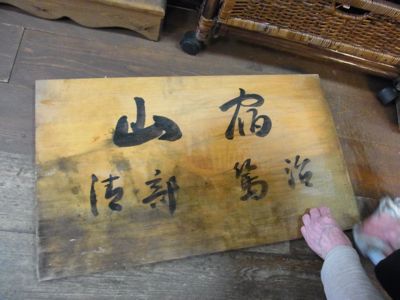 山宿
清新篤治